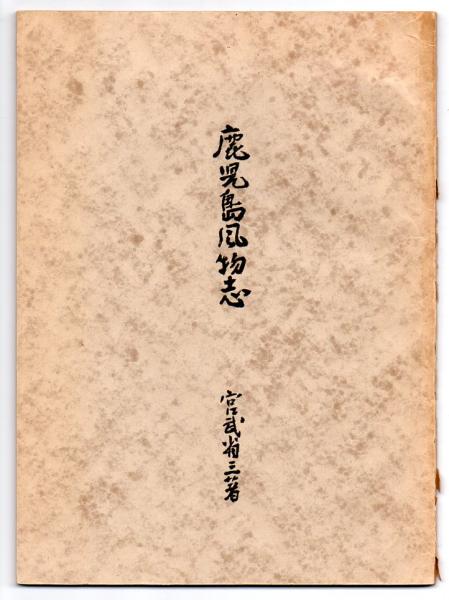 鹿児島風物志
宮武省三著